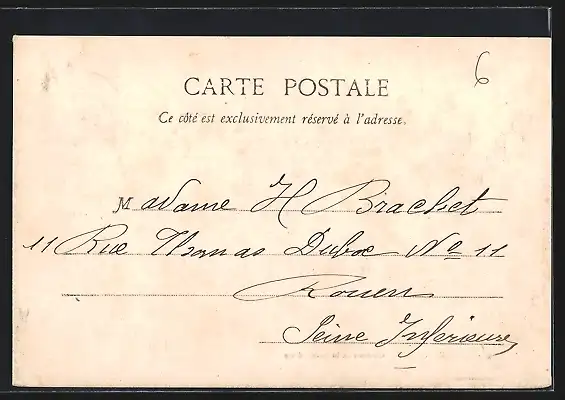 6
CARTE POSTALE
Ce côté est exclusivement réservé à l'adresse.
Madame H Brachet
11 Rue Thomas Duboc No 11
Rouen
Seine Inferieure